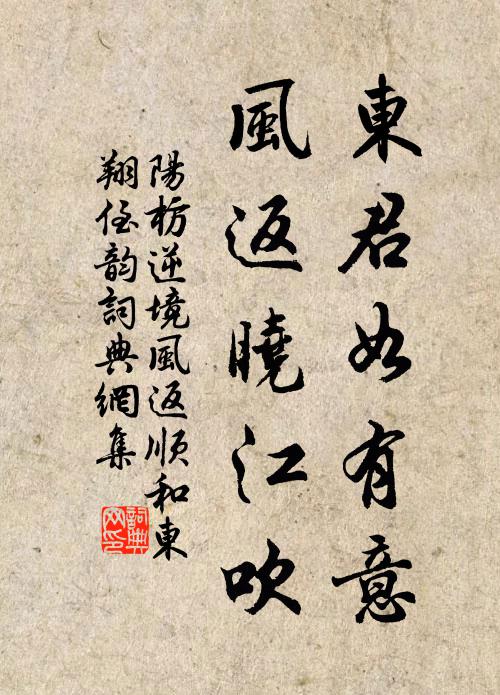 東君如有意
風返曉江吹
陽枋逆境風返順和東
翔侄韵詞典網集
詞典